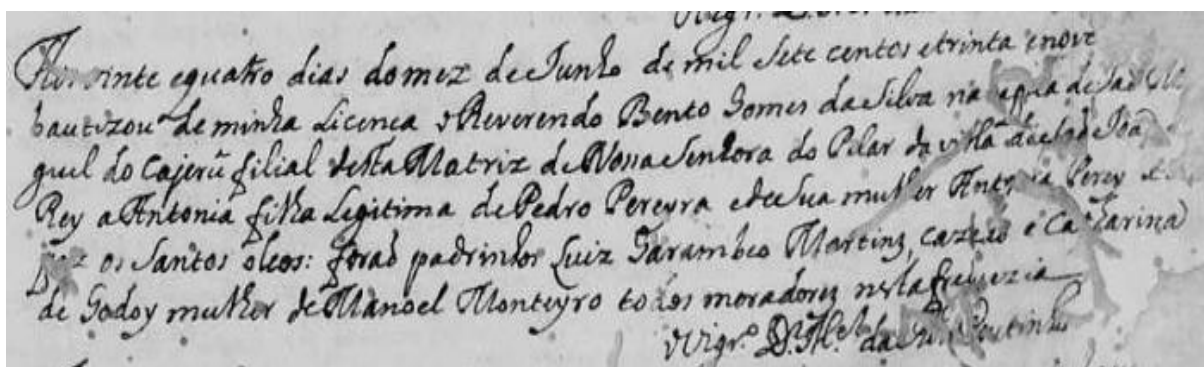 Vigr.º
Aos vinte e quatro dias do mez de Junho de mil sete centos e trinta e nove
bautizou de minha Licenca o Reverendo Bento Gomes da Silva na capela de Saõ Mi
guel do Cajerû filial desta Matriz de Nossa Senhora do Pilar da villa de Saõ Joaõ
Rey a Antonia filha Legitima de Pedro Pereyra e de sua mulher Antonia Perey
poz os Santos oleos: foraõ padrinhos Luiz Garambeo Martinz, cazado e Catharina
de Godoy mulher de Manoel Monteyro todos moradores nesta freguezia
Vigr.º D.r M.el da Coutinho